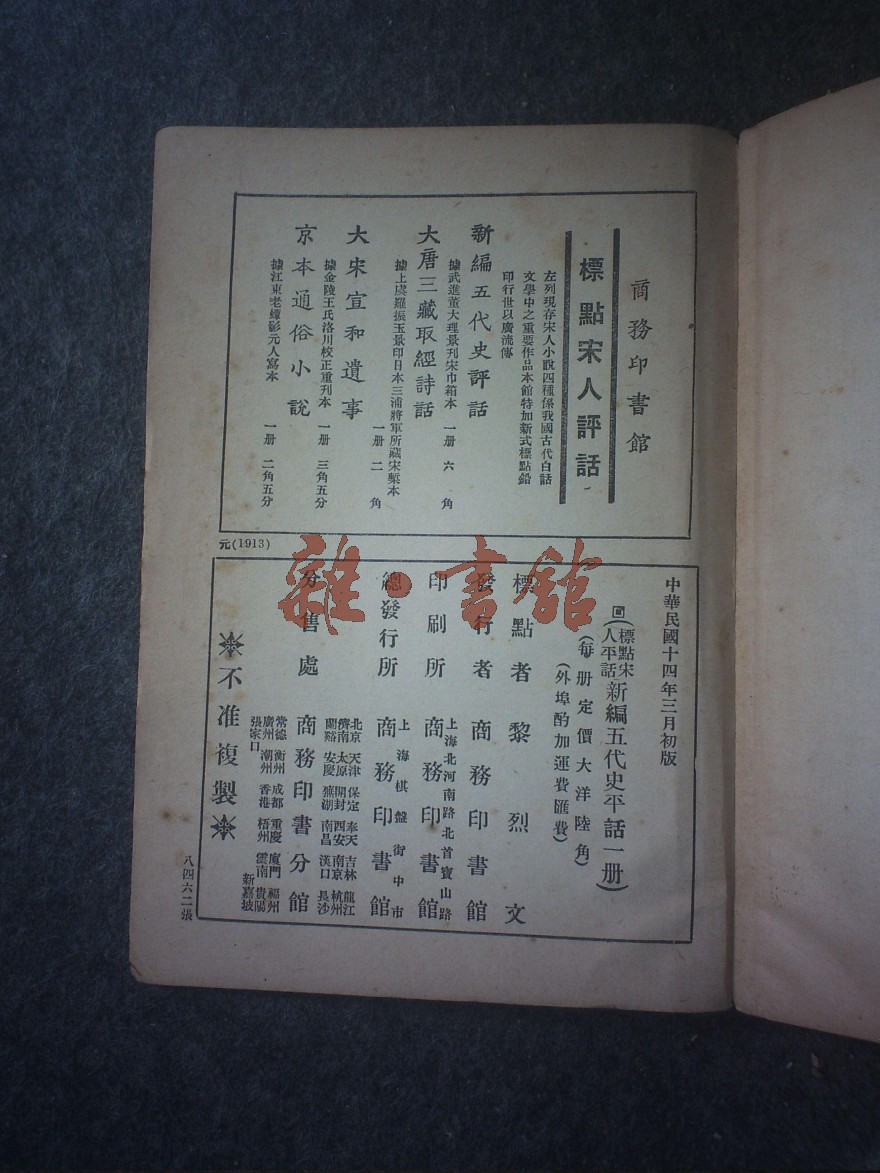 商務印書館
標點宋人評話
左列現存宋人小說四種係我國古代白話
文學中之重要作品本館特加新式標點鉛
印行世以廣流傳
新編五代史評話
據武進董大理景刊宋巾箱本 一册 六角
大唐三藏取經詩話
據上虞羅振玉景印日本三浦將軍所藏宋槧本
一册 二角
大宋宣和遺事
據金陵王氏洛川校正重刊本 一册 三角五分
京本通俗小說
據江東老蟫影元人寫本 一册 二角五分
元(1913)
中華民國十四年三月初版
(標點宋人平話 新編五代史平話一册)
(每册定價大洋陸角)
(外埠酌加運費匯費)
標點者 黎烈文
發行者 商務印書館
上海北河南路北首寶山路
印刷所 商務印書館
上海棋盤街中市
總發行所 商務印書館
北京 天津 保定 奉天 吉林 龍江
濟南 太原 開封 西安 南京 杭州
蘭谿 安慶 蕪湖 南昌 漢口 長沙
分售處 商務印書分館
常德 衡州 成都 重慶 廈門 福州
廣州 潮州 香港 梧州 雲南 貴陽
張家口 新嘉坡
不准複製
八四六二張
雜·書館